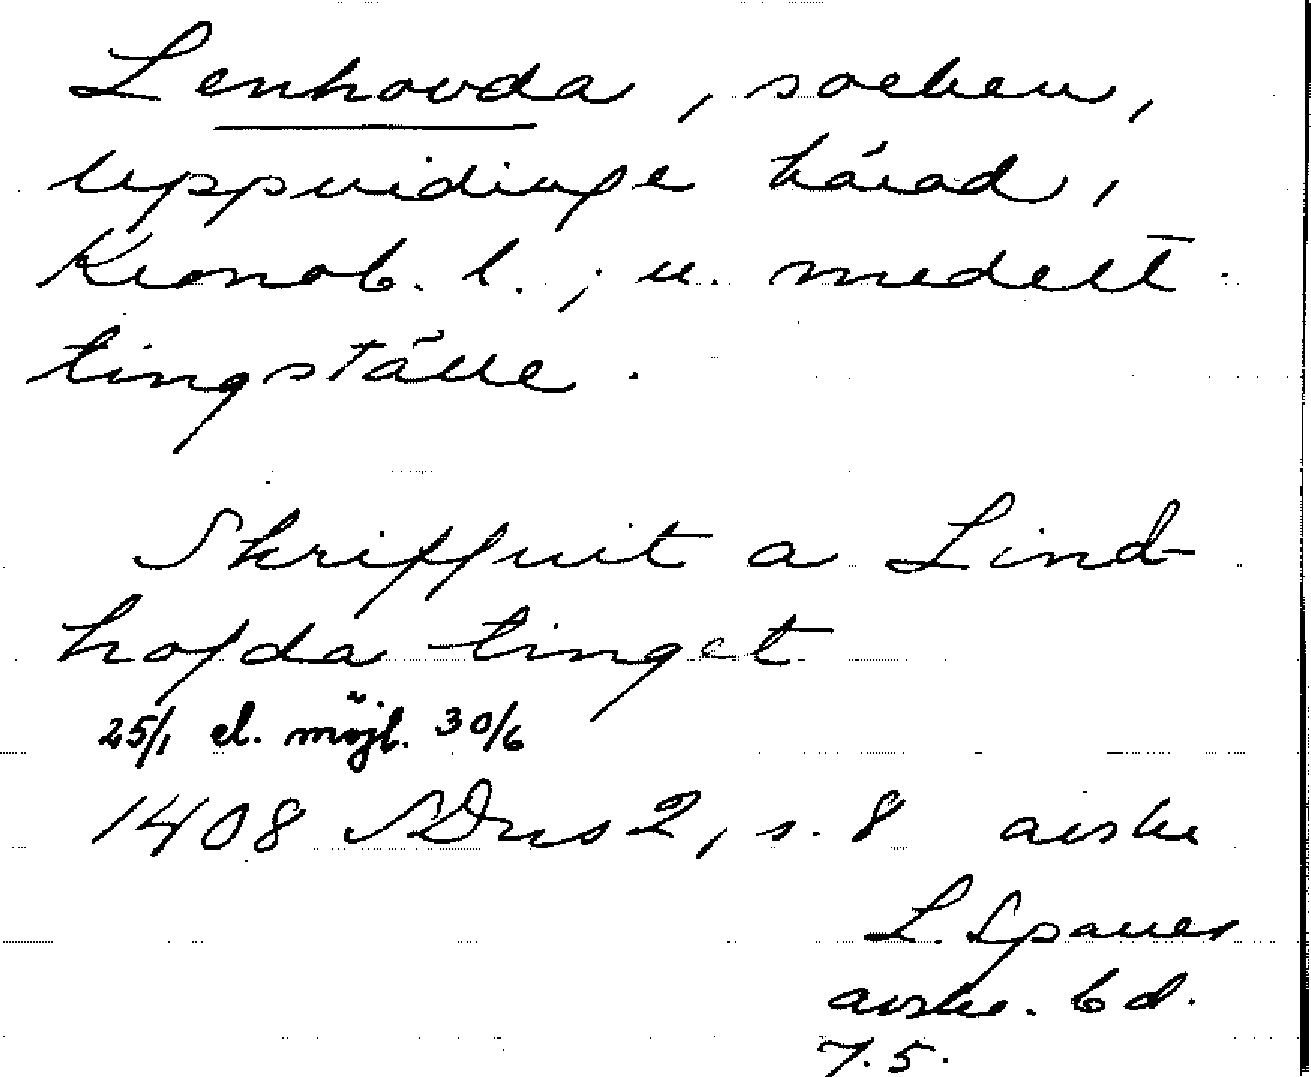 Lenhovda, socken,
Uppvidinge härad,
Kronob. l.; u. medelt
tingställe.
Skriffuit a Lind-
hofda tinget
25/1 el. möjl. 30/6
1408 SDns 2, s. 8 avskr
L. Spauer
avskr. bd.
7.5.